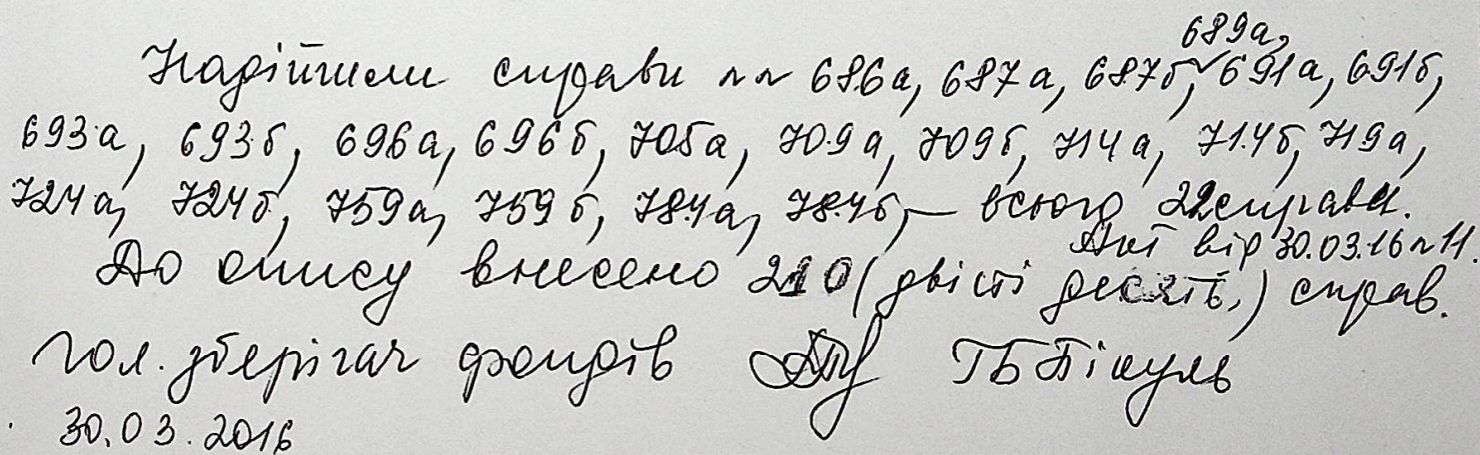 689а,
Надійшли справи №№ 686а, 687а, 687б, 691а, 691б,
693а, 693б, 696а, 696б, 705а, 709а, 709б, 714а, 714б, 719а,
724а, 724б, 759а, 759б, 784а, 784б, – всього 22 справи.
Акт від 30.03.16 №11.
До опису внесено 210 (двісті десять) справ.
Гол. зберігач фондів ГБ Пікуль
30.03.2016